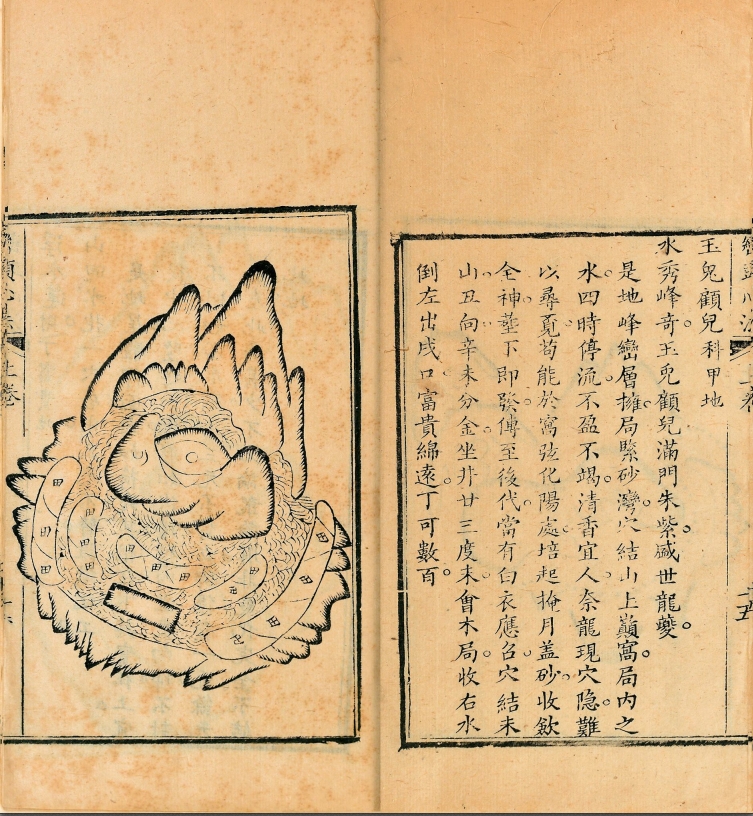 玉兔顧兒科甲地
水秀峰奇。玉兔顧兒滿門朱紫。盛世龍夔。
是地峰巒層擁。局緊砂灣。穴結山上巔窩。局內之
水。四時停流。不盈不竭。清香宜人。奈龍現穴隐。難
以尋覔。苟能於窩弦化陽處。培起掩月盖砂。收歛
全神。塟下即發。傳至後代。當有白衣應召。穴結未
山。丑向。辛未分金。坐井廿三度。未會木局。收右水
倒左出戌口。富貴綿遠。丁可數百。
上卷
田
田
田
田
田
田
田
田
田
田
田
田
田